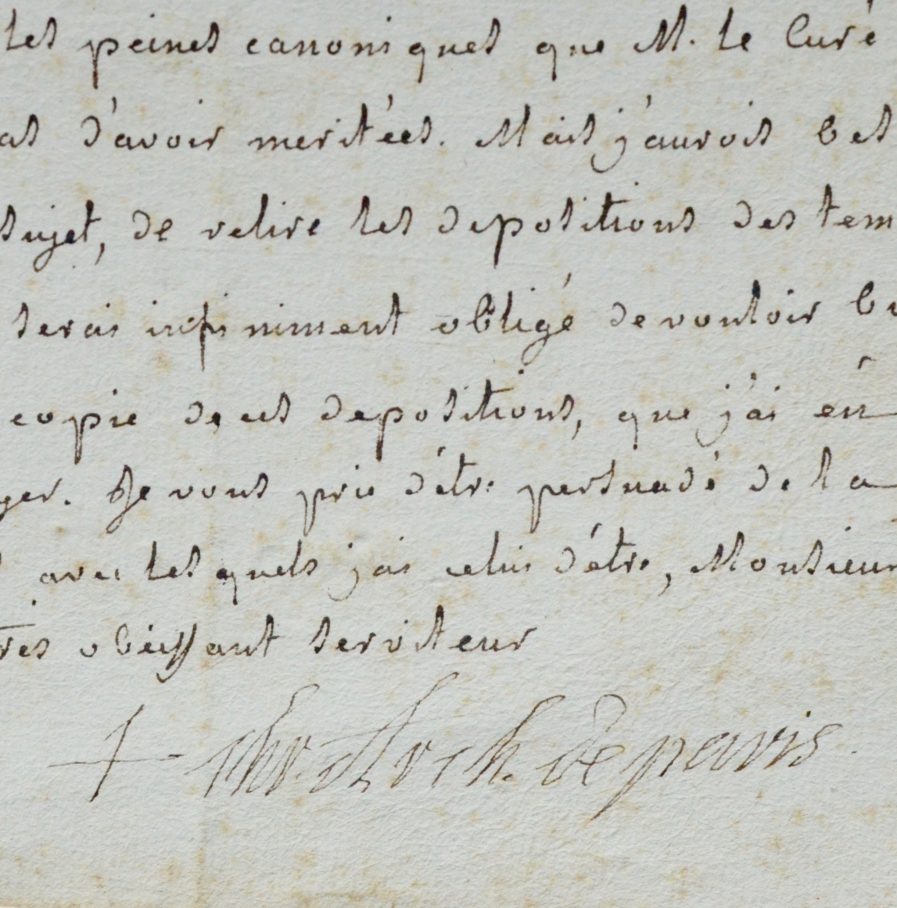 les peines canoniques que M. le Curé
as d'avoir meritées. Mais j'aurois bes
sujet, de relire les depositions des tem
serai infiniment obligé de vouloir b
copie de ces depositions, que j'ai en
ger. Je vous prie d'étre persuadé de la
avec lesquels j'ai celui d'étre, Monsieur
très obéissant serviteur
+ Chr. Arch. de paris